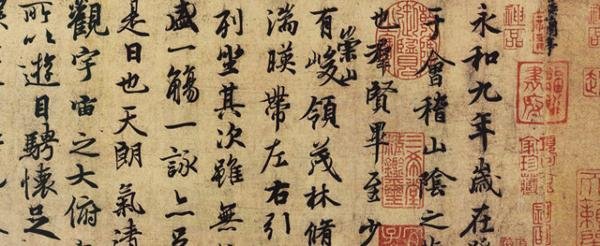 神品
永和九年歲在
于會稽山陰之
也羣賢畢至少
崇山
有峻領茂林脩
湍暎帶左右引
列坐其次雖無
盛一觴一詠亦足
是日也天朗氣清
觀宇宙之大俯
所以遊目騁懷足